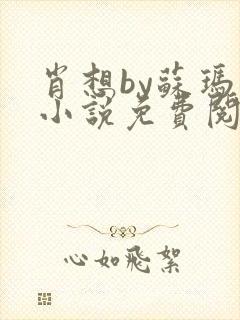 肖想by蘇瑪
小說免費閱
心如飛絮